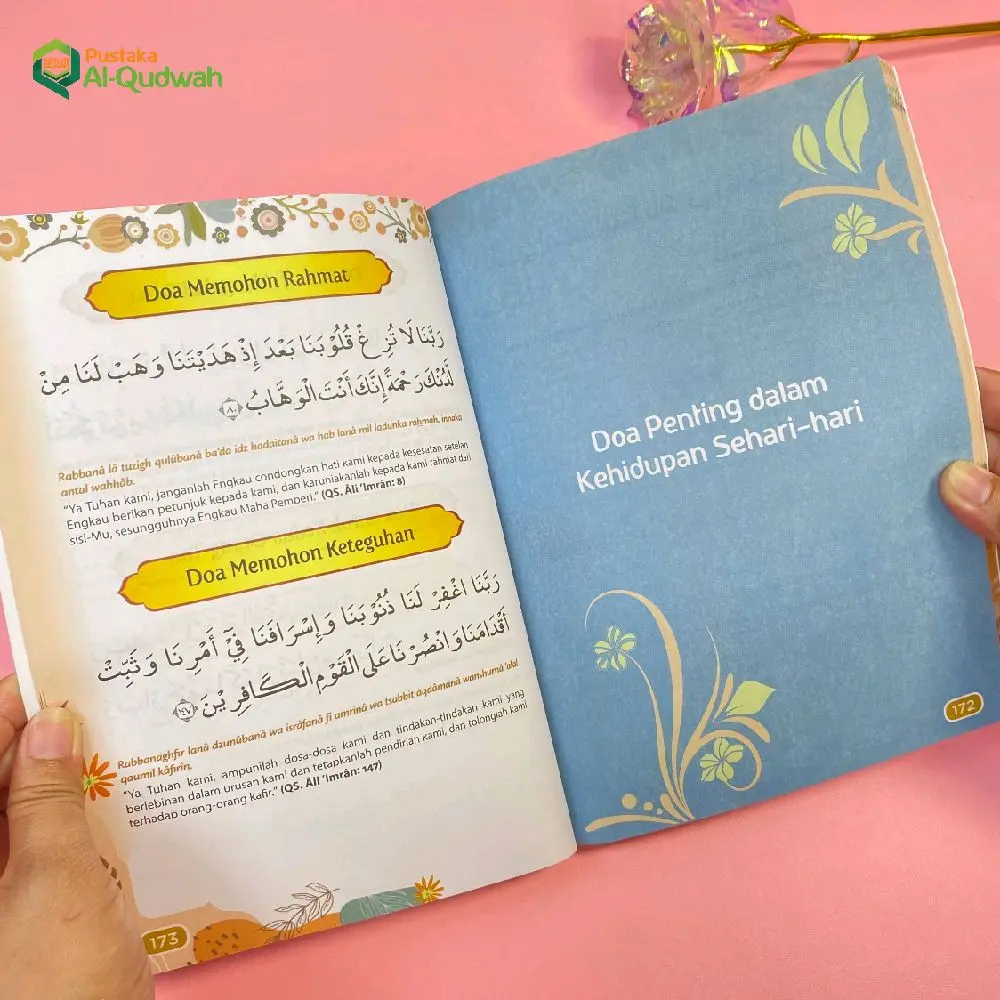 Pustaka
Al-Qudwah
Doa Penting dalam
Kehidupan Sehari-hari
172
Doa Memohon Rahmat
رَبَّنَا لَا تُزِغْ قُلُوْبَنَا بَعْدَ إِذْ هَدَيْتَنَا وَهَبْ لَنَا مِنْ
لَّدُنْكَ رَحْمَةً إِنَّكَ أَنْتَ الْوَهَّابُ ﴿٨﴾
Rabbanâ lâ tuzigh qulûbanâ ba'da idz hadaitanâ wa hab lanâ mil ladunka rahmah, innaka
antal wahhâb.
"Ya Tuhan kami, janganlah Engkau condongkan hati kami kepada kesesatan setelah
Engkau berikan petunjuk kepada kami, dan karuniakanlah kepada kami rahmat dari
sisi-Mu, sesungguhnya Engkau Maha Pemberi." (QS. Âli 'Imrân: 8)
Doa Memohon Keteguhan
رَبَّنَا اغْفِرْ لَنَا ذُنُوْبَنَا وَإِسْرَافَنَا فِيْٓ أَمْرِنَا وَثَبِّتْ
أَقْدَامَنَا وَانْصُرْنَا عَلَى الْقَوْمِ الْكَافِرِيْنَ ﴿١٤٧﴾
Rabbanaghfir lanâ dzunûbanâ wa isrâfanâ fî amrinâ wa tsabbit aqdâmanâ wanshurnâ 'alal
qaumil kâfirîn.
"Ya Tuhan kami, ampunilah dosa-dosa kami dan tindakan-tindakan kami yang
berlebihan dalam urusan kami dan tetapkanlah pendirian kami, dan tolonglah kami
terhadap orang-orang kafir." (QS. Âli 'Imrân: 147)
173